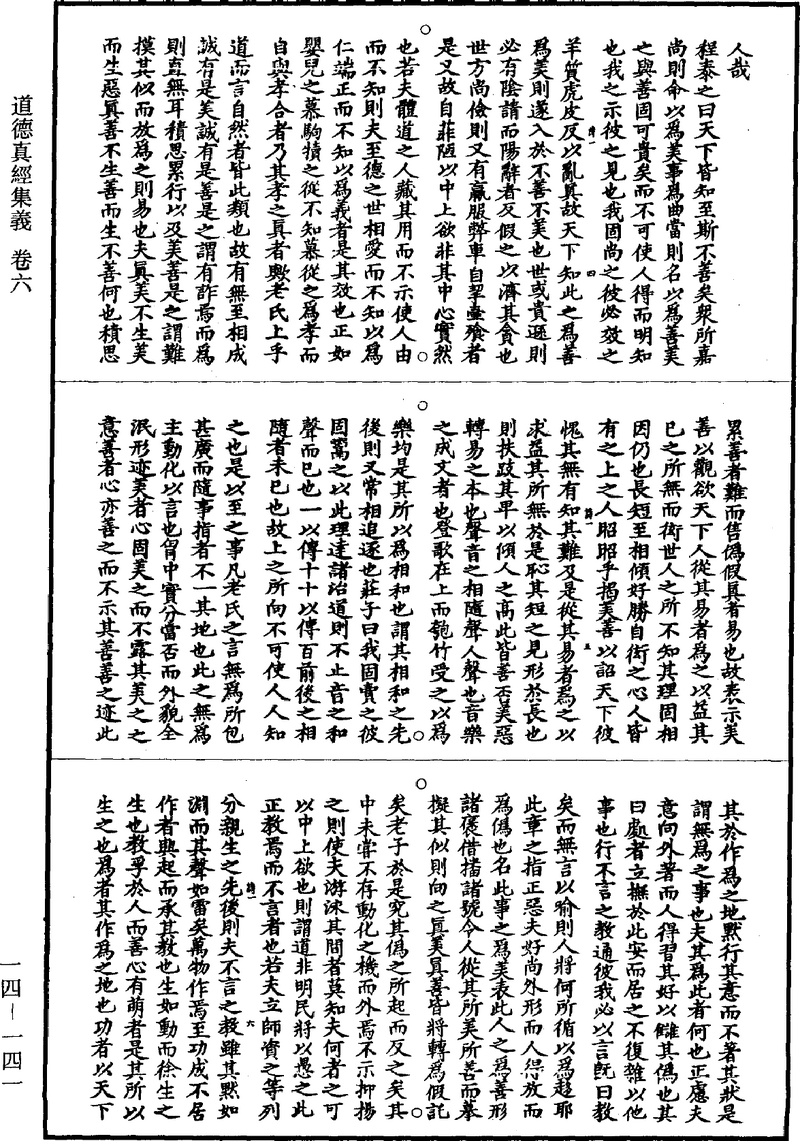 道德真經集義　卷六
人哉
程泰之曰天下皆知至斯不善矣衆所嘉
尚則命以爲美事爲曲當則名以爲善美
之與善固可貴矣而不可使人得而明知
也我之示彼之見也我固尚之彼必效之
羊質虎皮反以亂真故天下知此之爲善
爲美則遂入於不善不美也世或貴遜則
必有陰請而陽辭者反假之以濟其貪也
世方尚儉則又有羸服弊車自挈壷飱者
是又故自菲陋以中上欲非其中心實然
也若夫體道之人藏其用而不示使人由
而不知則夫至德之世相愛而不知以爲
仁端正而不知以爲義者是其效也正如
嬰兒之慕駒犢之從不知慕從之爲孝而
自與孝合者乃其孝之真者歟老氏上乎
道而言自然者皆此類也故有無至相成
誠有是美誠有是善是之謂有詐焉而爲
則直無耳積思累行以及美善是之謂難
摸其似而放爲之則易也夫真美不生美
而生惡真善不生善而生不善何也積思
累善者難而售僞假真者易也故表示美
善以觀欲天下人從其易者爲之以益其
己之所無而衒世人之所不知其理固相
因仍也長短至相傾好勝自衒之心人皆
有之上之人昭昭乎揭美善以詔天下彼
愧其無有知其難及是從其易者爲之以
求益其所無於是恥其短之見形於長也
則扶跂其卑以傾人之高此皆善否美惡
轉易之本也聲音之相隨聲人聲也音樂
之成文者也登歌在上而匏竹受之以爲
樂均是其所以爲相和也謂其相和之先
後則又常相追逐也莊子曰我固賣之彼
固鬻之以此理達諸治道則不止音之和
聲而已也一以傳十十以傳百前後之相
隨者未已也故上之所向不可使人人知
之也是以至之事凡老氏之言無爲所包
甚廣而隨事指者不一其地也此之無爲
主動化以言也胷中實分當否而外貌全
泯形迹美者心固美之而不露其美之之
意善者心亦善之而不示其善善之迹此
其於作爲之地默行其意而不著其狀是
謂無爲之事也夫其爲此者何也正慮夫
意向外著而人得習其好以讎其僞也其
曰處者立撫於此安而居之不復雜以他
事也行不言之教通彼我必以言旣曰教
矣而無言以喻則人將何所循以爲趍耶
此章之指正惡夫好尚外形而人得放而
爲僞也名此事之爲美表此人之爲善形
諸褒借播諸號令人從其所美所善而摹
擬其似則向之真美真善皆將轉爲假託
矣老子於是究其僞之所起而反之矣其
中未嘗不存動化之機而外焉不示抑揚
之則使夫游泳其間者莫知夫何者之可
以中上欲也則謂道非明民將以愚之此
正教焉而不言者也若夫立師資之等列
分親生之先後則夫不言之教雖其默如
淵而其聲如雷矣萬物作焉至功成不居
作者興起而承其教也生如動而徐生之
生也教孚於人而善心有萌者是其所以
生之也爲者其作爲之地也功者以天下
一四－一四一